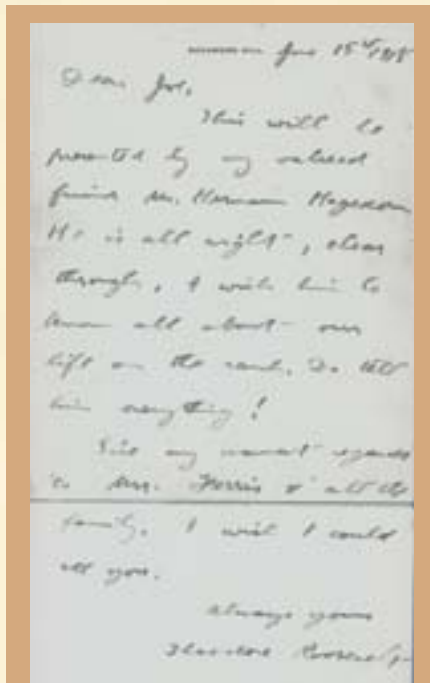 15th 1918
Dear Joe,
This will be
presented by my valued
friend Mr. Herman Hagedorn
He is all right, clear
through, I wish him to
know all about our
life on the ranch. Do tell
him everything!
Give my warmest regards
to Mrs. Ferris & all the
family. I wish I could
see you.
Always yours
Theodore Roosevelt